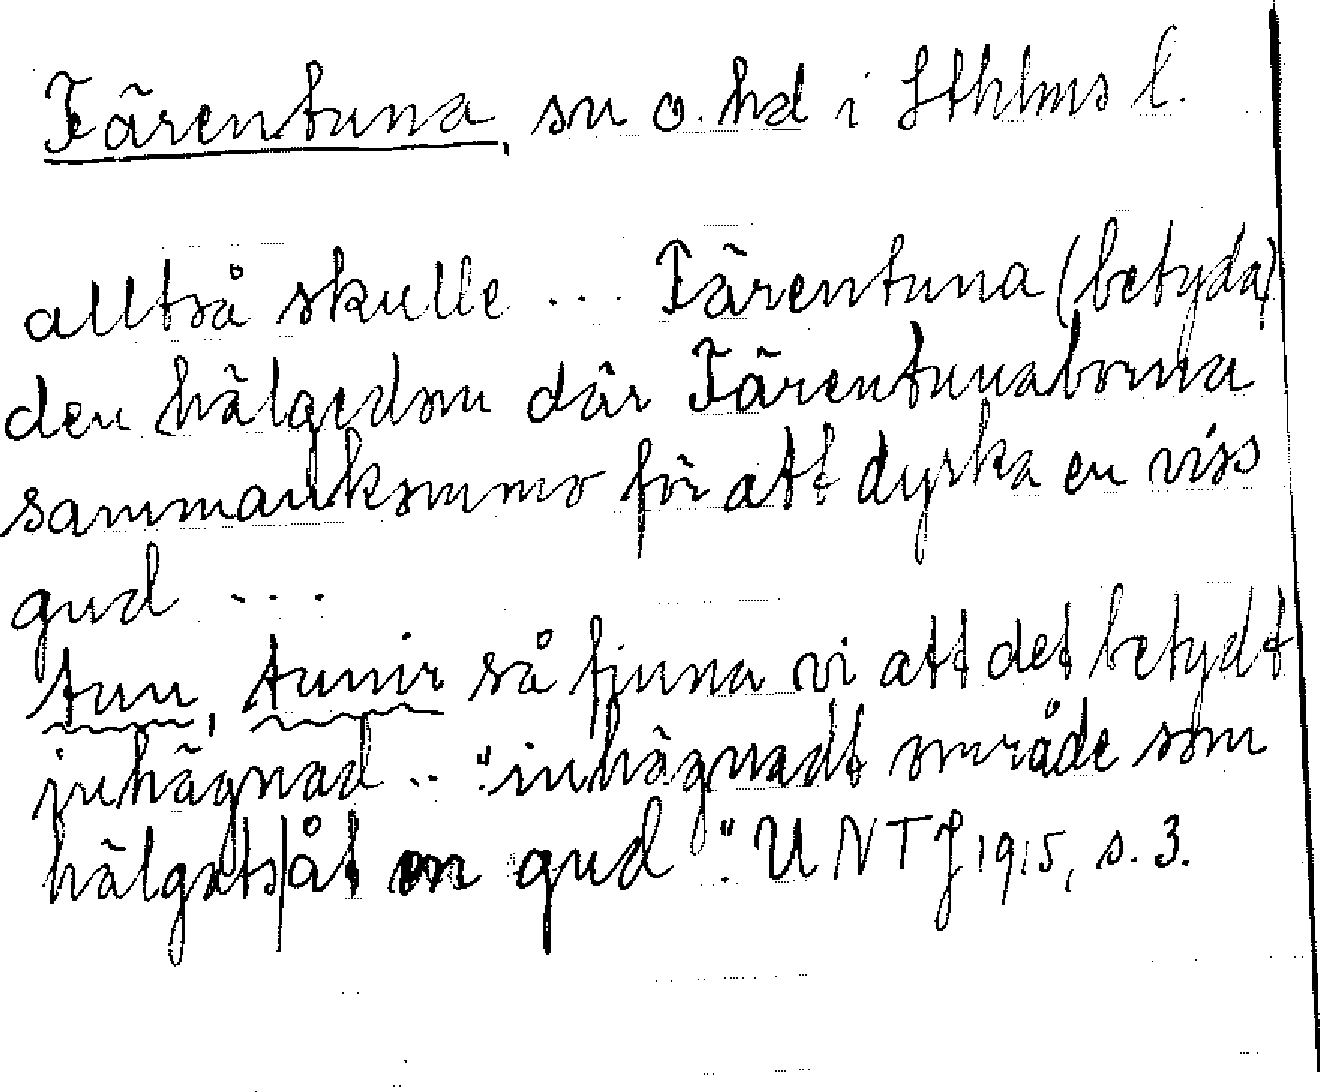 Färentuna, sn o. hd i Sthlms l.
alltså skulle ... Färentuna (betyda)
den hälgedom där Färentunaborna
sammankommo för att dyrka en viss
gud ...
tun, tunir så finna vi att det betydt
inhägnad .. "inhägnadt område som
hälgats åt en gud". UNT J 1915, s. 3.